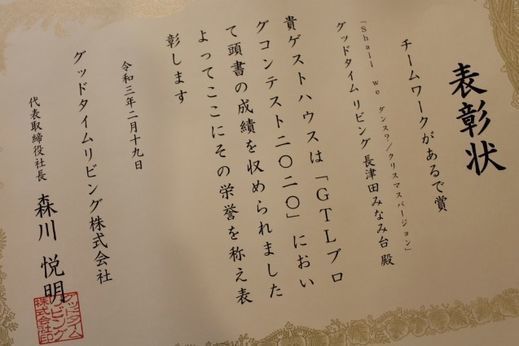 表彰状
チームワークがあるで賞
「Shall we ダンス？/クリスマスバージョン」
グッドタイムリビング 長津田みなみ台 殿
貴ゲストハウスは「GTLブロ
グコンテスト二〇二〇」におい
て頭書の成績を収められました
よってここにその栄誉を称え表
彰します
令和三年二月十九日
グッドタイムリビング株式会社
代表取締役社長 森川 悦明
グッドタイム
リビング
株式会社印